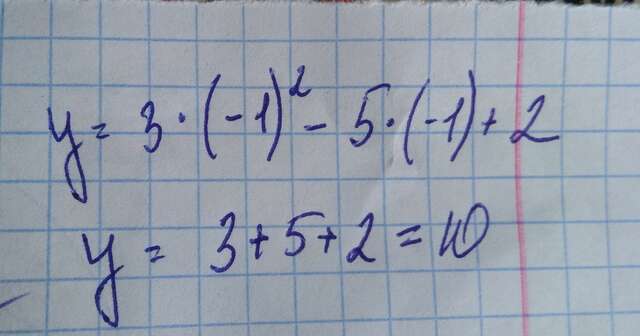 y = 3 · (-1)² - 5 · (-1) + 2
y = 3 + 5 + 2 = 10